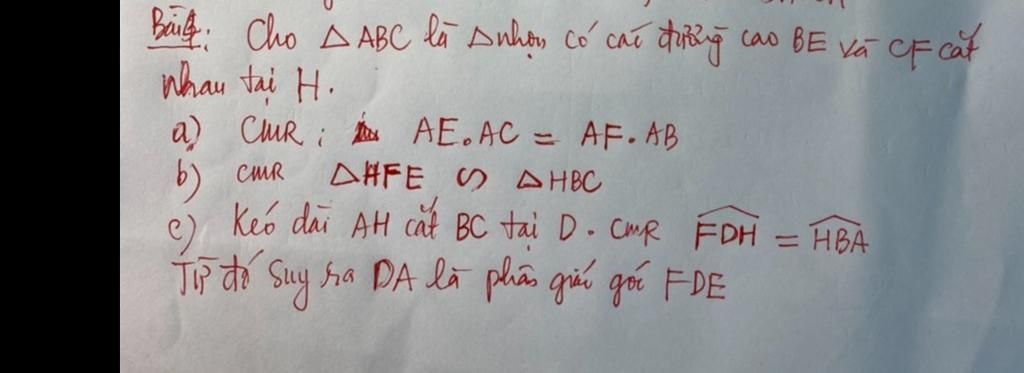 Bài 4: Cho △ABC là △nhọn có các đường cao BE và CF cắt
nhau tại H.
a) CMR: AE.AC = AF.AB
b) CMR △HFE ∽ △HBC
c) Kéo dài AH cắt BC tại D. CMR \widehat{FDH} = \widehat{HBA}
Từ đó suy ra DA là phân giác góc FDE